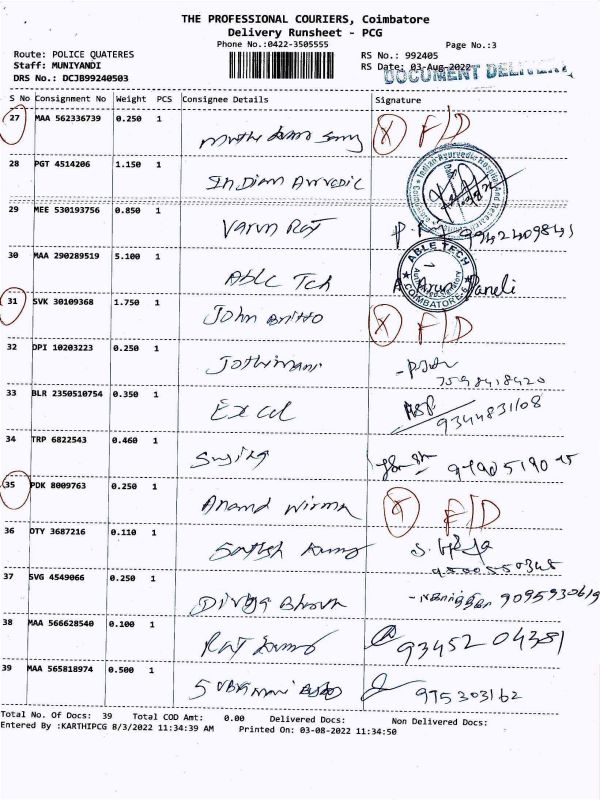 THE PROFESSIONAL COURIERS, Coimbatore
Delivery Runsheet - PCG
Phone No.:0422-3505555
Page No.:3
Route: POLICE QUATERES
RS No.: 992405
Staff: MUNIYANDI
RS Date: 03-Aug-2022
DOCUMENT DELIVERY
DRS No.: DCJB99240503
S No Consignment No Weight PCS Consignee Details Signature
27 MAA 562336739 0.250 1 X F/D
28 PGT 4514206 1.150 1 Indian
29 MEE 530193756 0.850 1 Varun Raj
30 MAA 290289519 5.100 1 Able Tch
ABLE TECH
COIMBATORE
31 SVK 30109368 1.750 1 John Britto X F/D
32 DPI 10203223 0.250 1 Jothimani
7598418420
33 BLR 2350510754 0.350 1 Excel
9344831108
34 TRP 6822543 0.460 1
35 PDK 8009763 0.250 1 Anand X F/D
36 OTY 3687216 0.110 1 Satish Kumar
37 SVG 4549066 0.250 1 Divya 9095930619
38 MAA 566628540 0.100 1 Raj Kumar 9345204381
39 MAA 565818974 0.500 1 975303162
Total No. Of Docs: 39 Total COD Amt: 0.00 Delivered Docs: Non Delivered Docs:
Entered By :KARTHIPCG 8/3/2022 11:34:39 AM Printed On: 03-08-2022 11:34:50